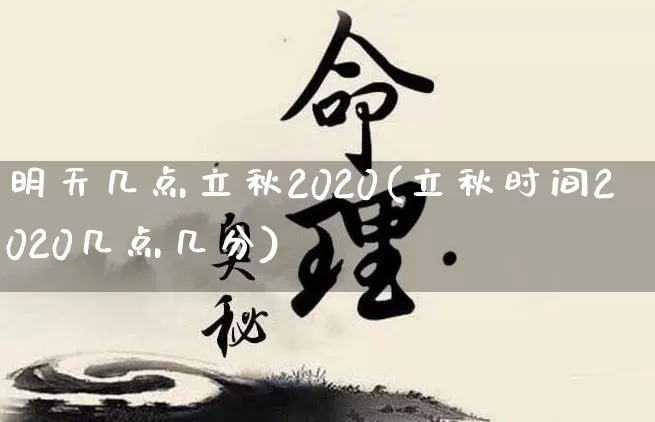 命理
奥秘
明天几点立秋2020(立秋时间2
020几点几分)